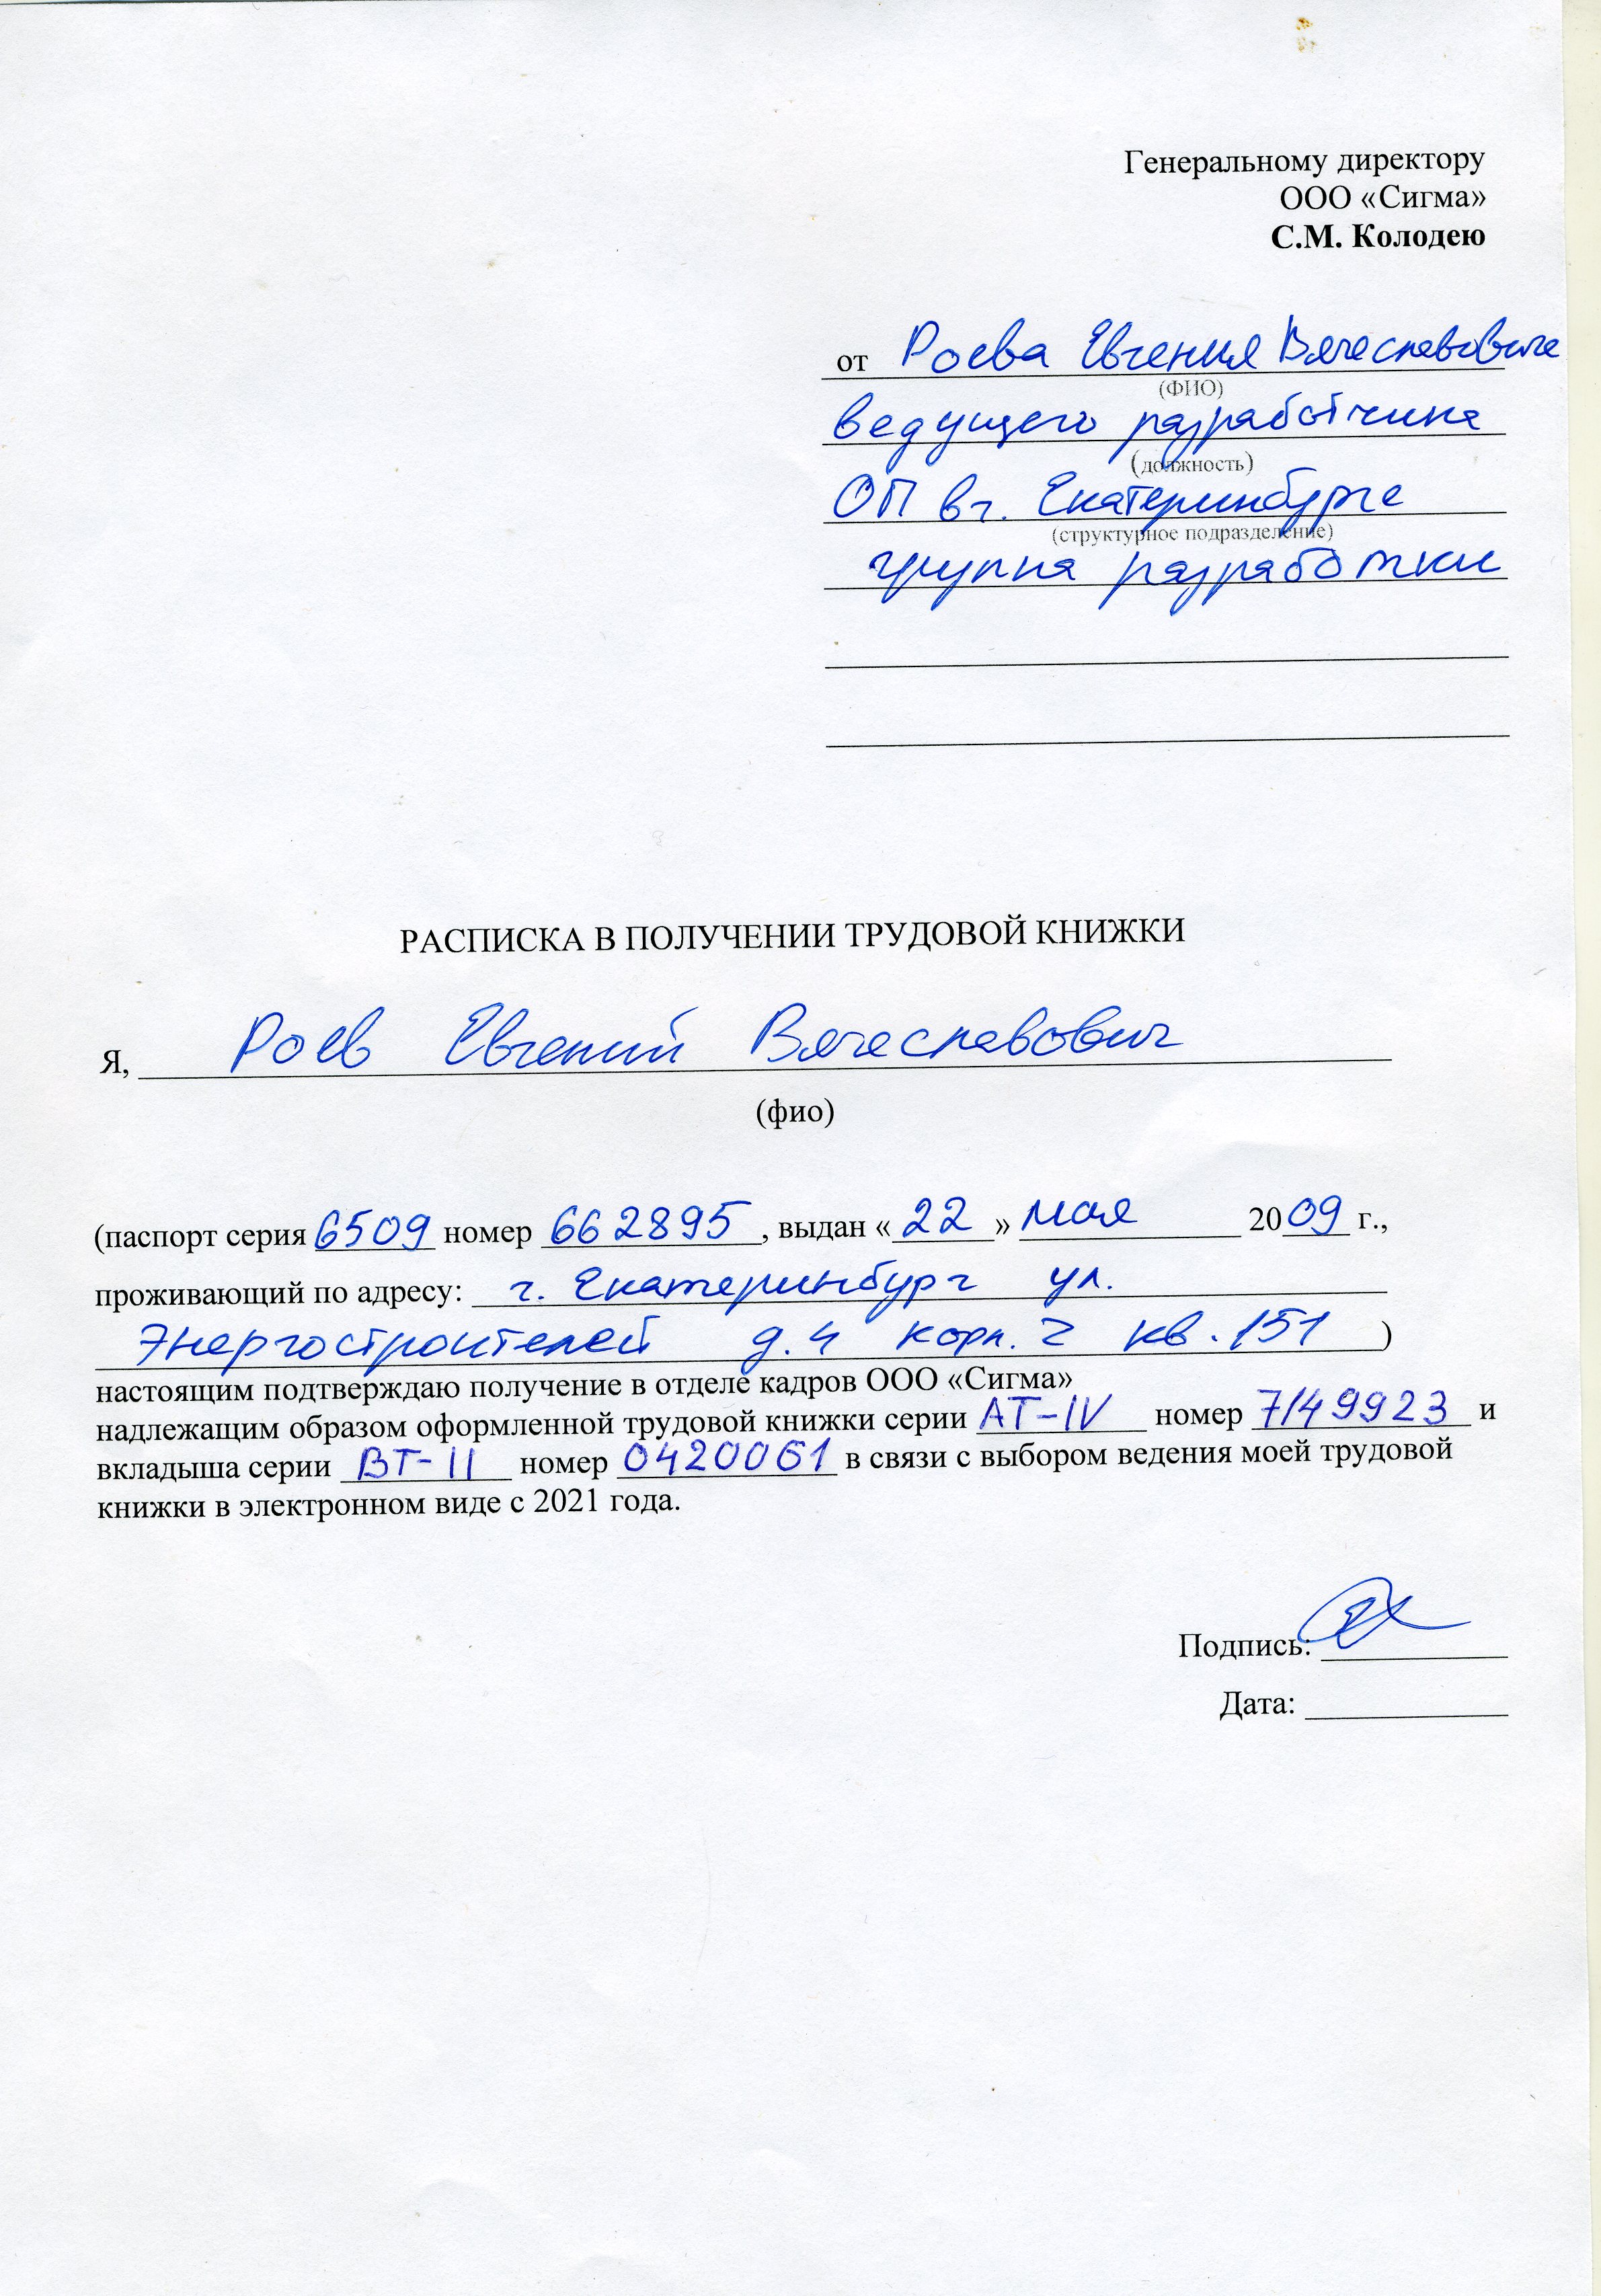 Генеральному директору
ООО «Сигма»
С.М. Колодею
от Роева Евгения Вячеславовича
(ФИО)
ведущего разработчика
(должность)
ОП в г. Екатеринбурге
(структурное подразделение)
группа разработки
РАСПИСКА В ПОЛУЧЕНИИ ТРУДОВОЙ КНИЖКИ
Я, Роев Евгений Вячеславович
(фио)
(паспорт серия 6509 номер 662895, выдан «22» мая 2009 г.,
проживающий по адресу: г. Екатеринбург ул.
Энергостроителей д. 4 корп. 2 кв. 151)
настоящим подтверждаю получение в отделе кадров ООО «Сигма»
надлежащим образом оформленной трудовой книжки серии АТ-IV номер 7149923 и
вкладыша серии ВТ-II номер 0420061 в связи с выбором ведения моей трудовой
книжки в электронном виде с 2021 года.
Подпись:
Дата: